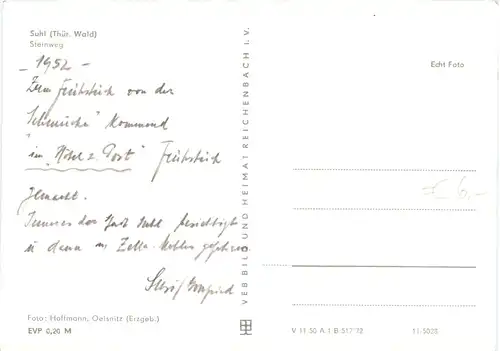 Suhl (Thür. Wald)
Sternweg
- 1952 -
Zum Frühstück von der
kommend
"im "Hotel z. Post" Frühstück
gemacht.
Inneres der Stadt Suhl besichtigt
u dann n. Zella-Mehlis gefahren
VEB BILD UND HEIMAT REICHENBACH I. V.
Echt Foto
6,-
Foto: Hoffmann, Oelsnitz (Erzgeb.)
EVP 0,20 M
V 11 50 A 1 B 517/72